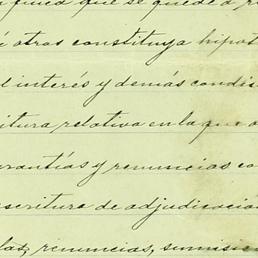 que se quede a
otros constituya hipot
interés y demás condic
ritura relativa en la que
arantías y renuncias co
escritura de adjudicación
renuncias, sumisión